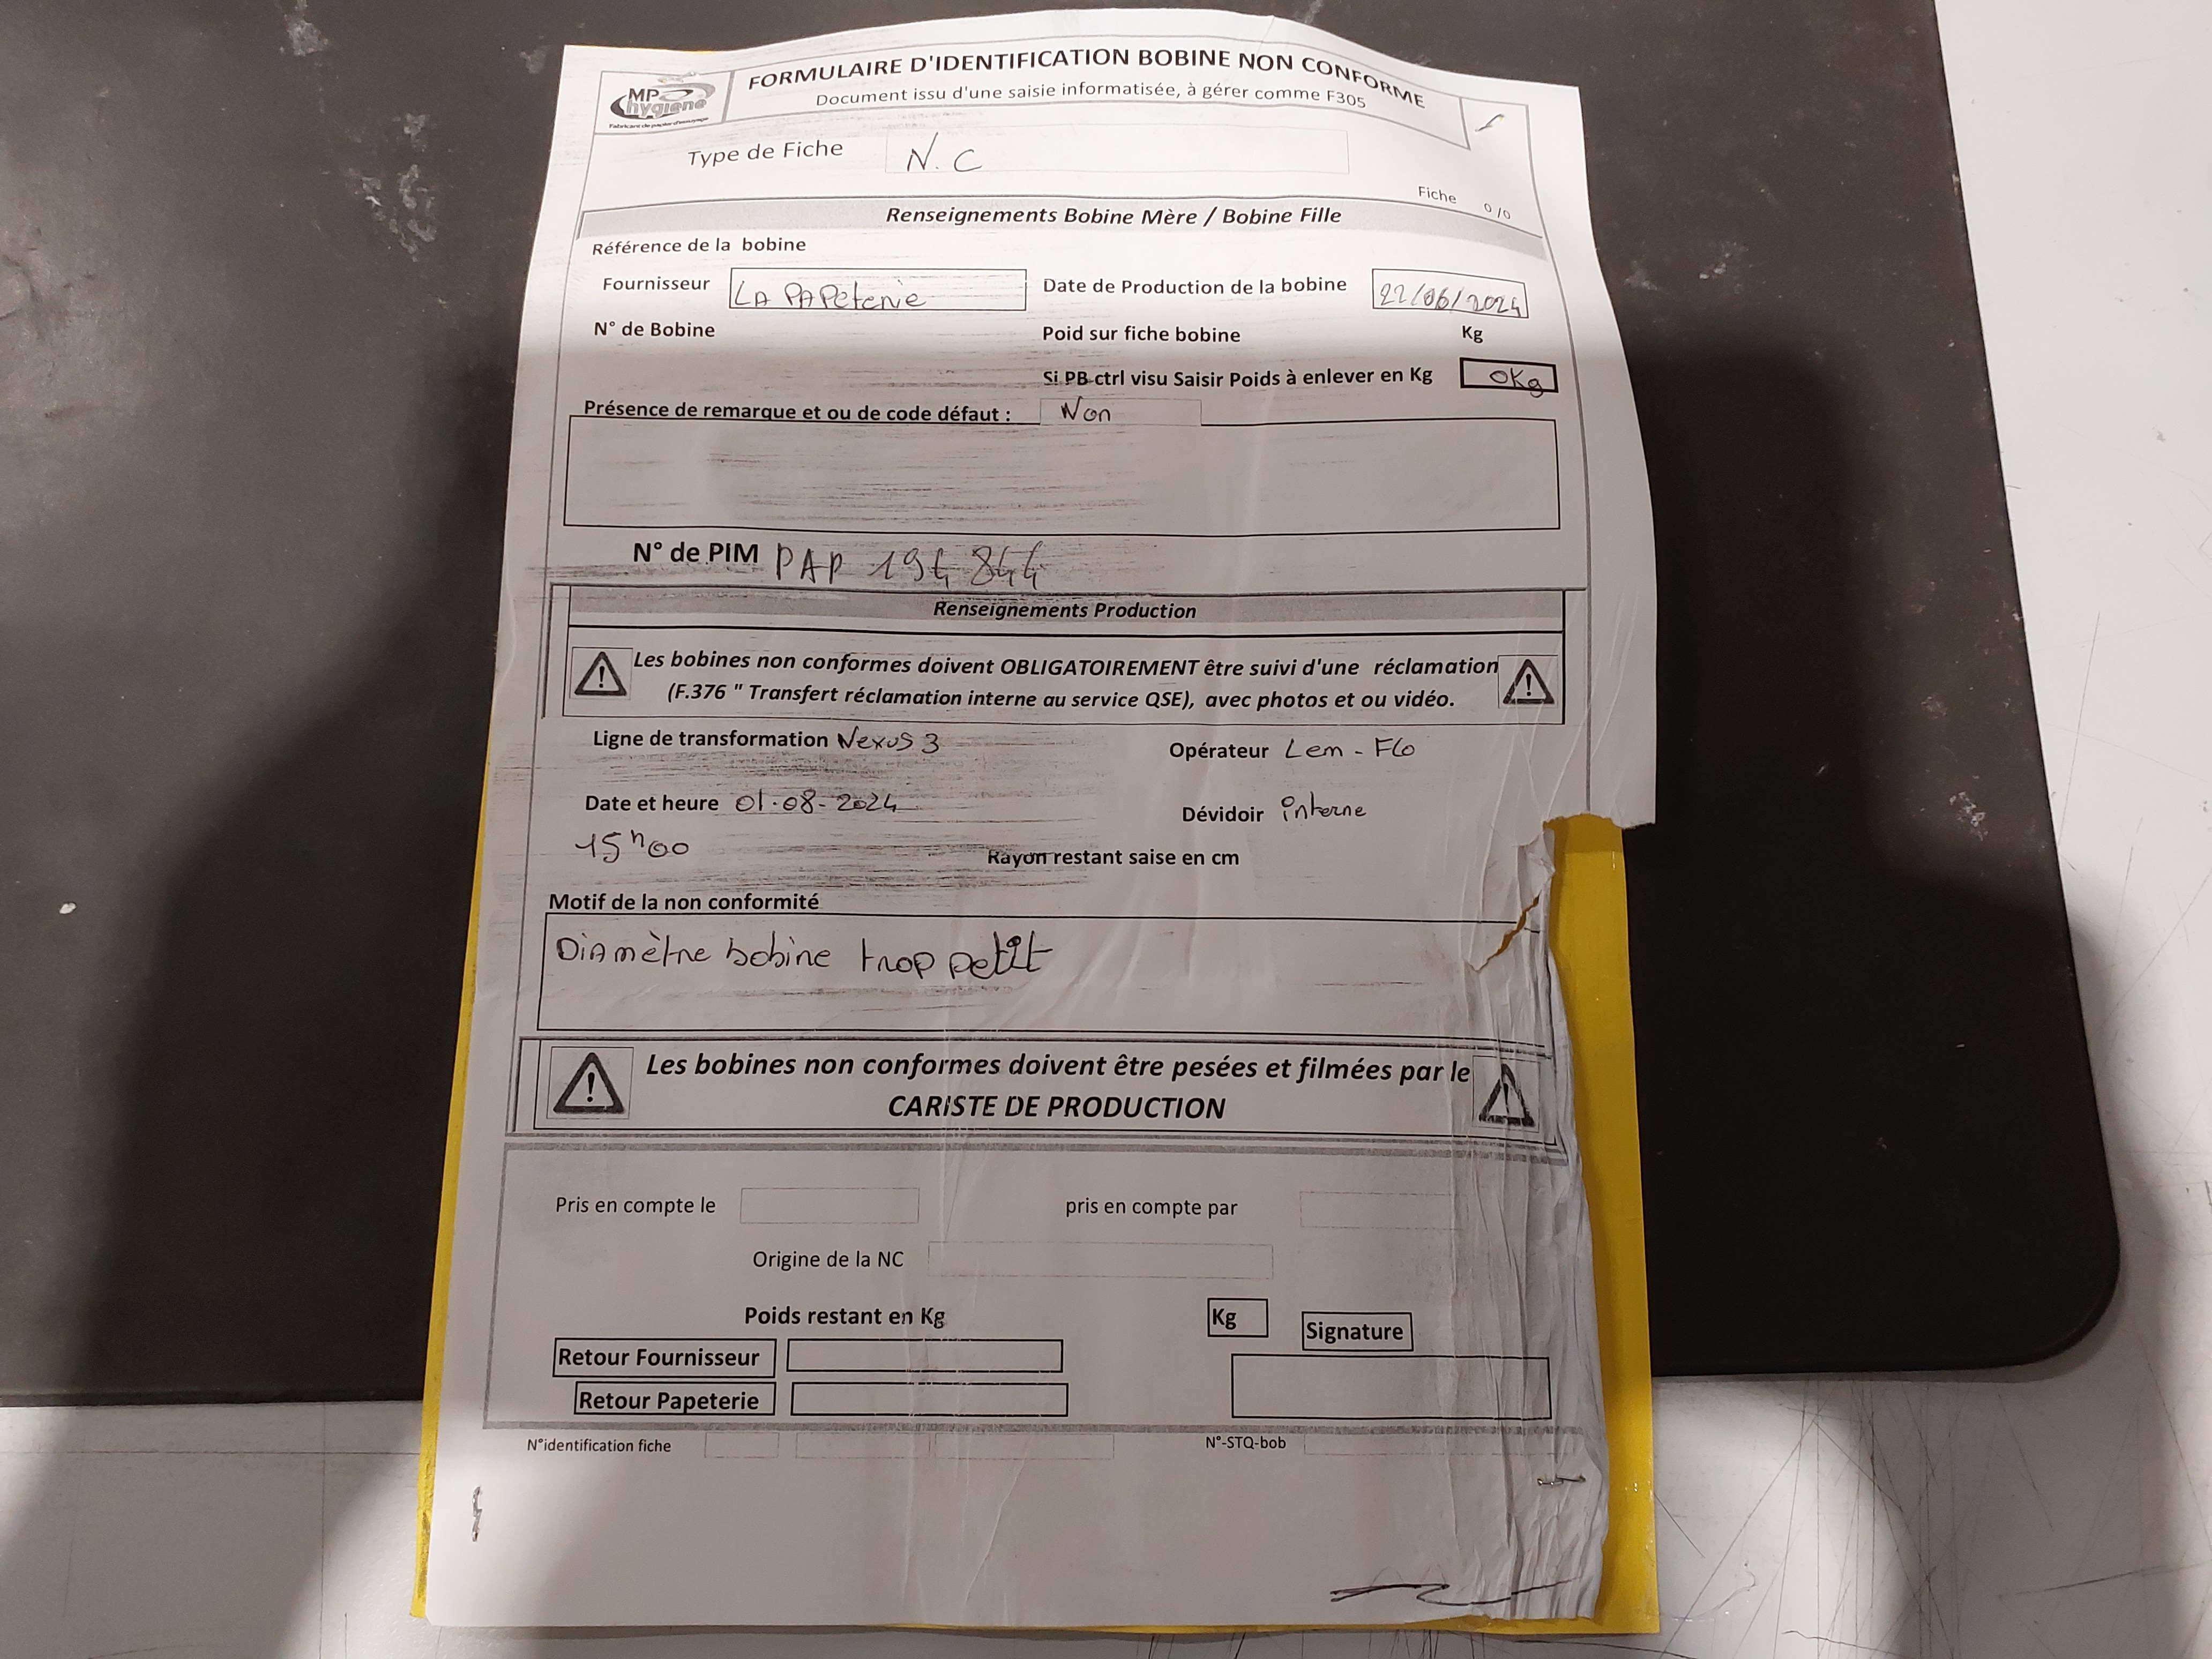 MP hygiene
Fabricant de papier d'essuyage
FORMULAIRE D'IDENTIFICATION BOBINE NON CONFORME
Document issu d'une saisie informatisée, à gérer comme F305
Type de Fiche N.C
Fiche 0/0
Renseignements Bobine Mère / Bobine Fille
Référence de la bobine
Fournisseur LA PAPeterie Date de Production de la bobine 22/06/2024
N° de Bobine Poid sur fiche bobine Kg
Si PB ctrl visu Saisir Poids à enlever en Kg 0Kg
Présence de remarque et ou de code défaut : Non
N° de PIM PAP 194 844
Renseignements Production
Les bobines non conformes doivent OBLIGATOIREMENT être suivi d'une réclamation
(F.376 " Transfert réclamation interne au service QSE), avec photos et ou vidéo.
Ligne de transformation Nexus 3 Opérateur Lem - Flo
Date et heure 01-08-2024 Dévidoir interne
15h00 Rayon restant saise en cm
Motif de la non conformité
Diamètre bobine trop petit
Les bobines non conformes doivent être pesées et filmées par le
CARISTE DE PRODUCTION
Pris en compte le pris en compte par
Origine de la NC
Poids restant en Kg Kg Signature
Retour Fournisseur
Retour Papeterie
N°identification fiche N°-STQ-bob